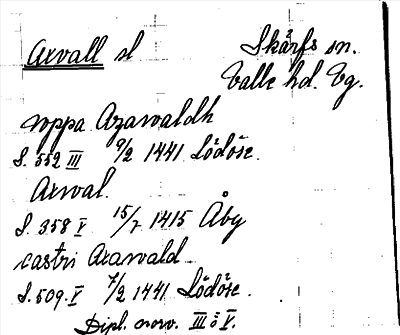 Axvall sl Skärfs sn.
Valle hd. Vg.
uppa Axawaldh
S. 552 III 9/2 1441 Lödöse.
Axwal.
S. 358 V 15/7 1415 Åby
castri Axawald
S. 509. V 7/2 1441 Lödöse.
Dipl. norv. III o V.